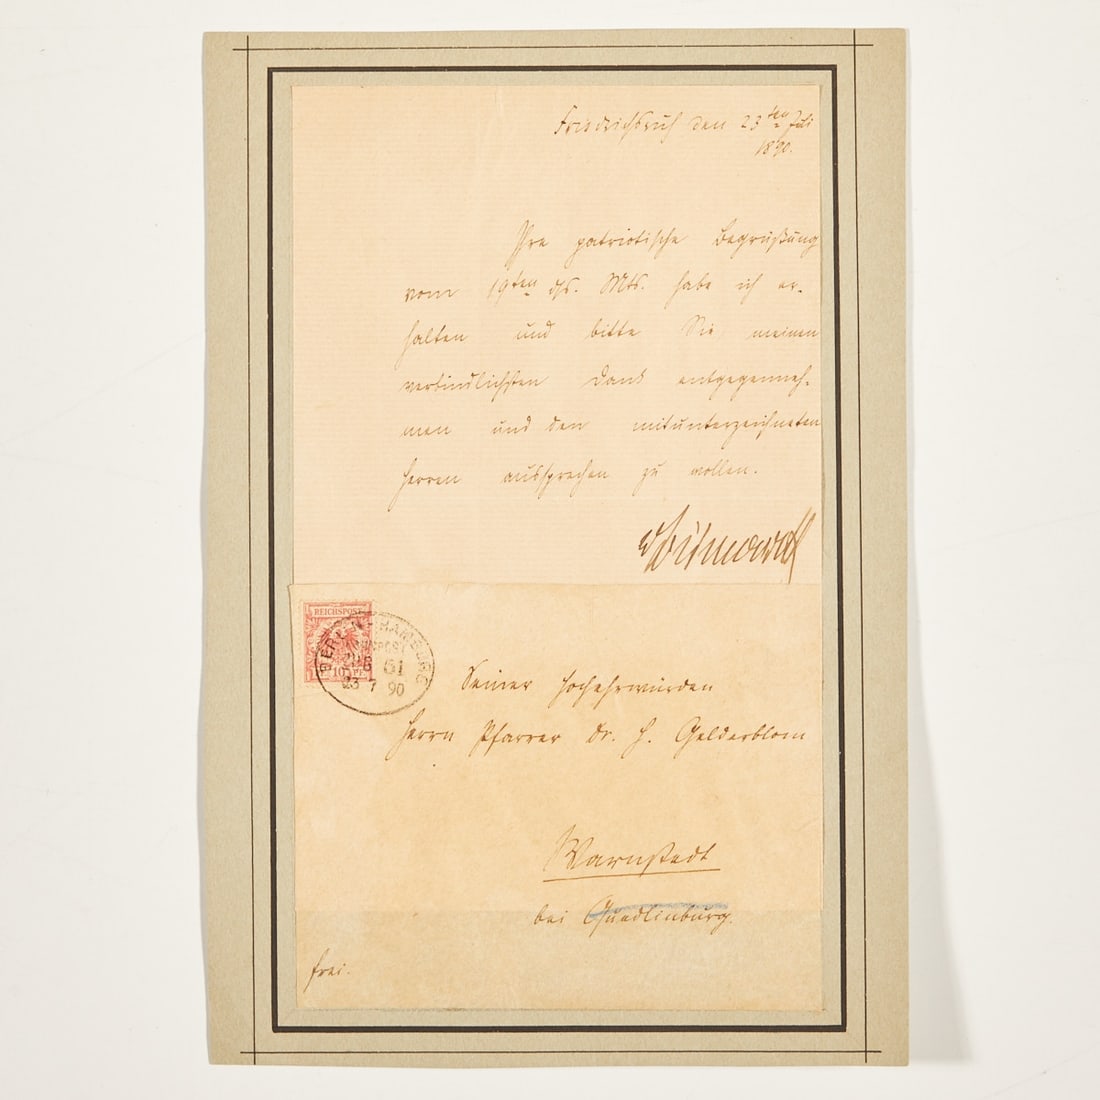 Friedrichsruh den 23ten Juli
1890.
Ihre patriotische Begrüßung
vom 19ten ds. Mts. habe ich er-
halten und bitte Sie meinen
verbindlichsten Dank entgegenneh-
men und den mitunterzeichneten
Herren aussprechen zu wollen.
v Bismarck
REICHSPOST
10 PF
BERLIN-HAMBURG
BAHNPOST
61
23 7 90
Seiner Hochehrwürden
Herrn Pfarrer Dr. H. Gelderblom
Warnstedt
bei Quedlinburg.
frei.